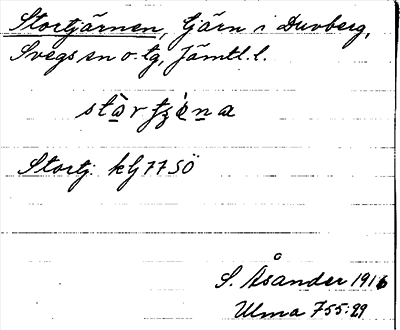 Stortjärnen, tjärn i Duvberg,
Svegs sn o. tg, Jämtl. l.
Stortj. kbl 77 SÖ
S. Åsander 1916
Ulma 755:29